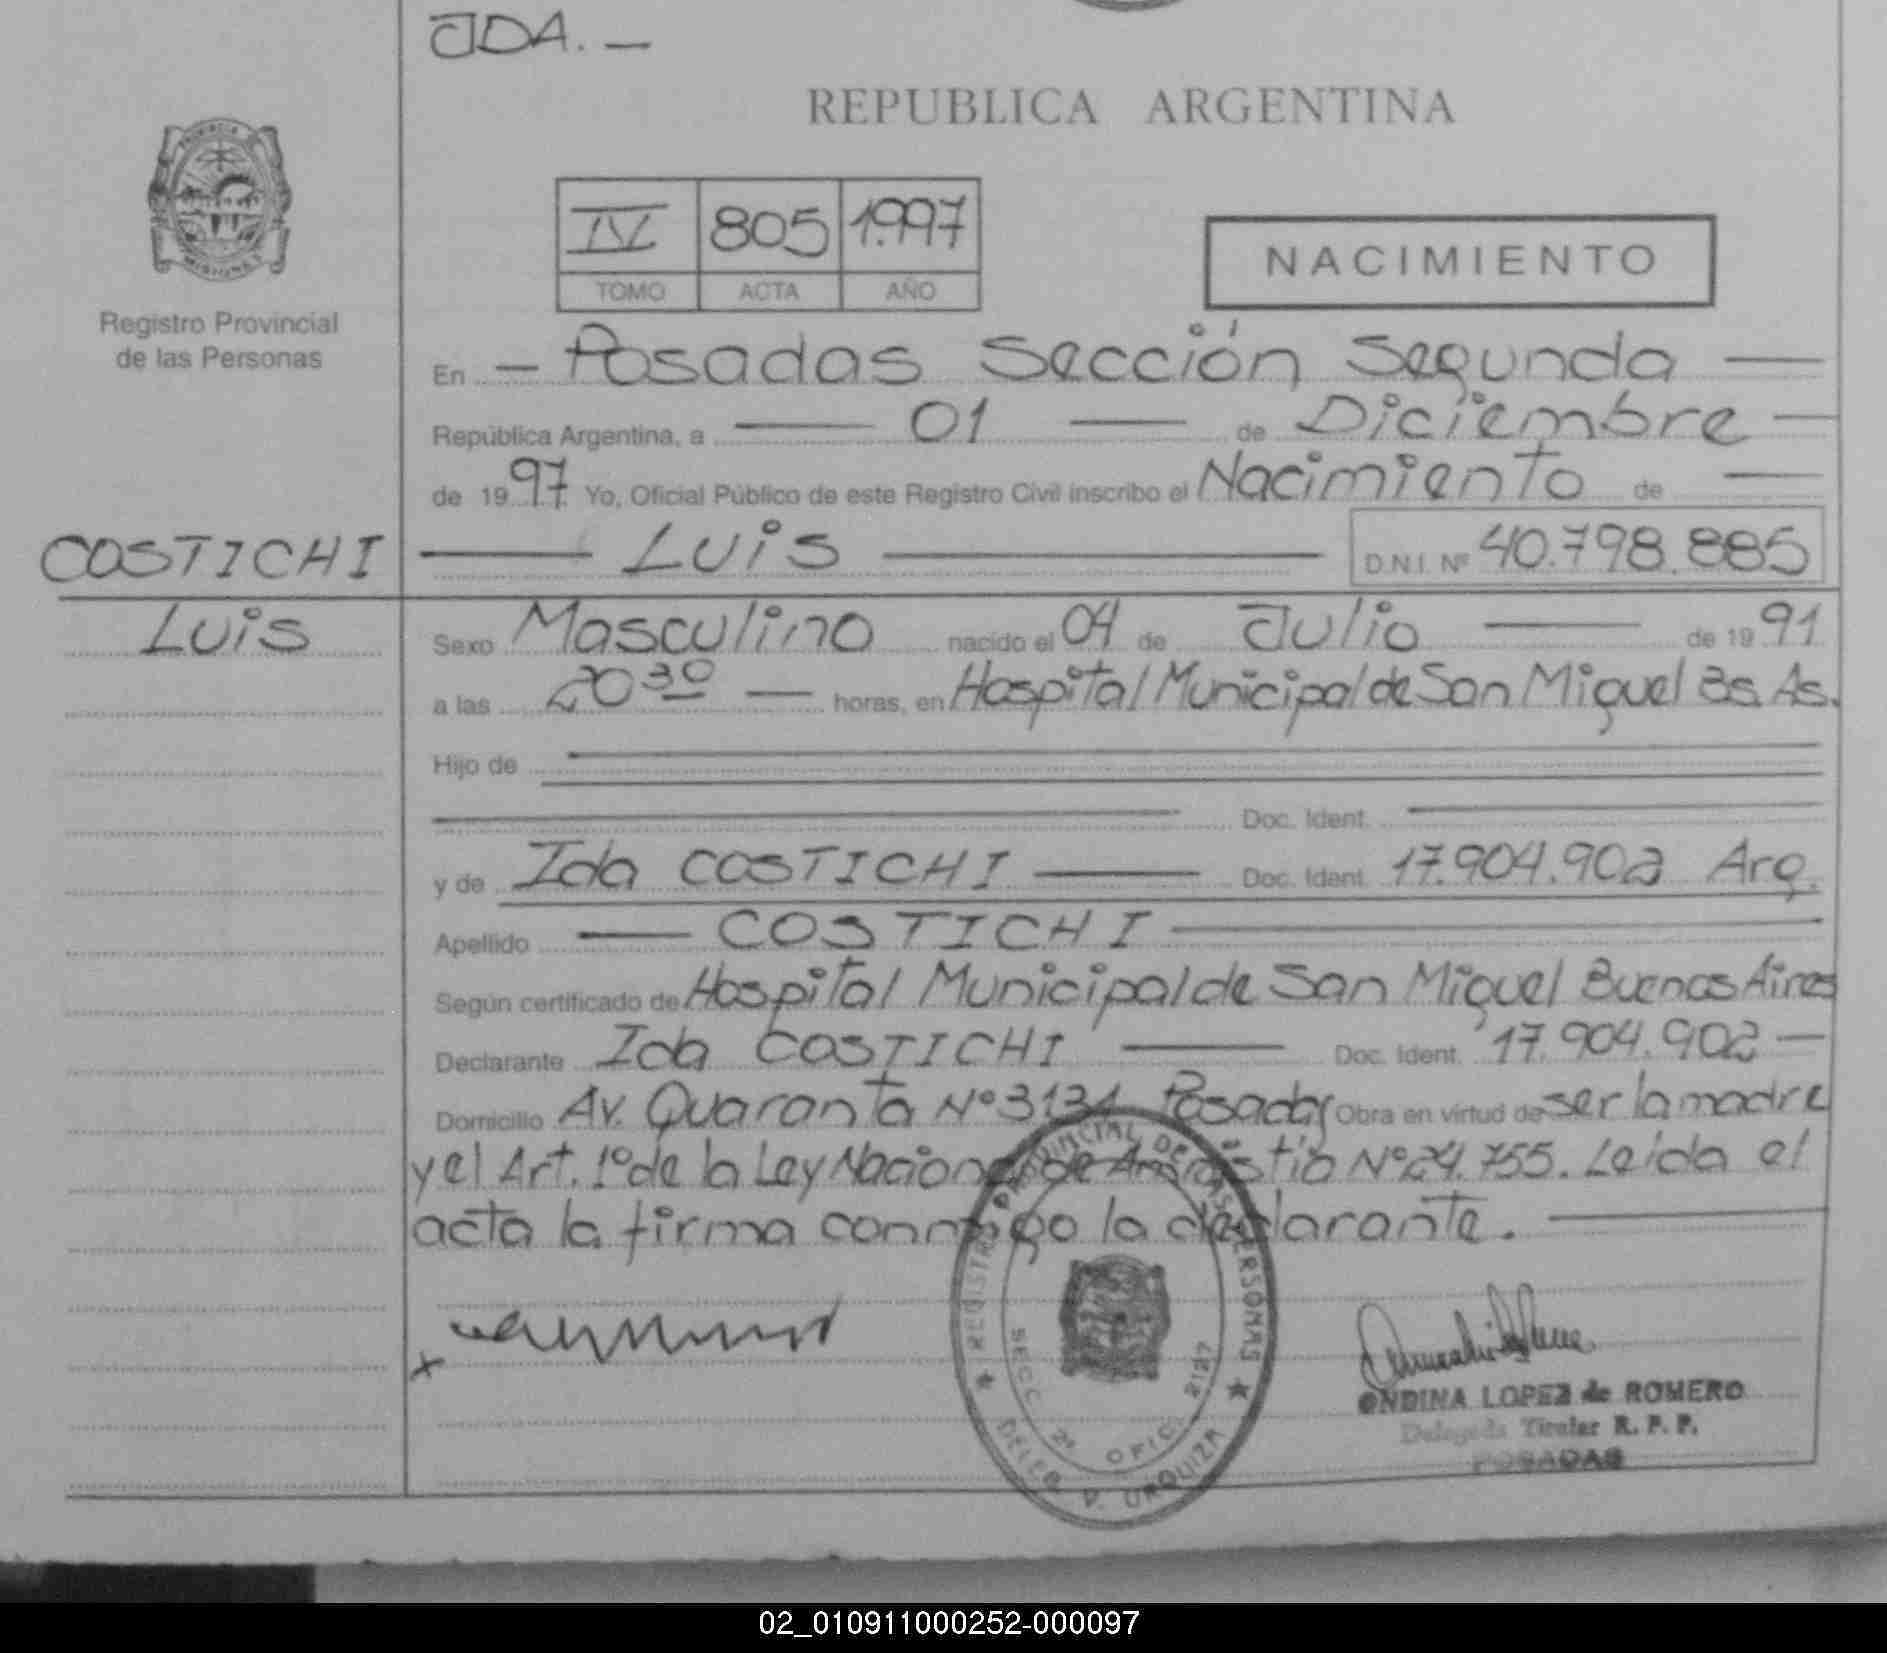 JDA. —
REPUBLICA ARGENTINA
IV 805 1.997
TOMO ACTA AÑO
NACIMIENTO
Registro Provincial
de las Personas
En — Posadas Sección Segunda —
República Argentina, a — 01 — de Diciembre —
de 1997 Yo, Oficial Público de este Registro Civil inscribo el Nacimiento de —
COSTICHI — Luis — D.N.I. Nº 40.798.885
Luis
Sexo Masculino nacido el 04 de Julio — de 1991
a las 20 30 — horas, en Hospital Municipal de San Miguel Bs. As.
Hijo de
Doc. Ident.
y de Ida COSTICHI — Doc. Ident. 17.904.902 Arg.
Apellido — COSTICHI —
Según certificado de Hospital Municipal de San Miguel Buenos Aires
Declarante Ida COSTICHI — Doc. Ident. 17.904.902 —
Domicilio Av. Quaranta Nº 3131 Posadas Obra en virtud de ser la madre
y el Art. 1º de la Ley Nacional de Amnistia Nº 24.755. Leida el
acta la firma conmigo la declarante. —
REGISTRO PROVINCIAL DE LAS PERSONAS
SECC. 2ª OFIC. 2127
DELEG. V. URQUIZA
x
ONDINA LOPEZ de ROMERO
Delegada Titular R. P. P.
POSADAS
02_010911000252-000097